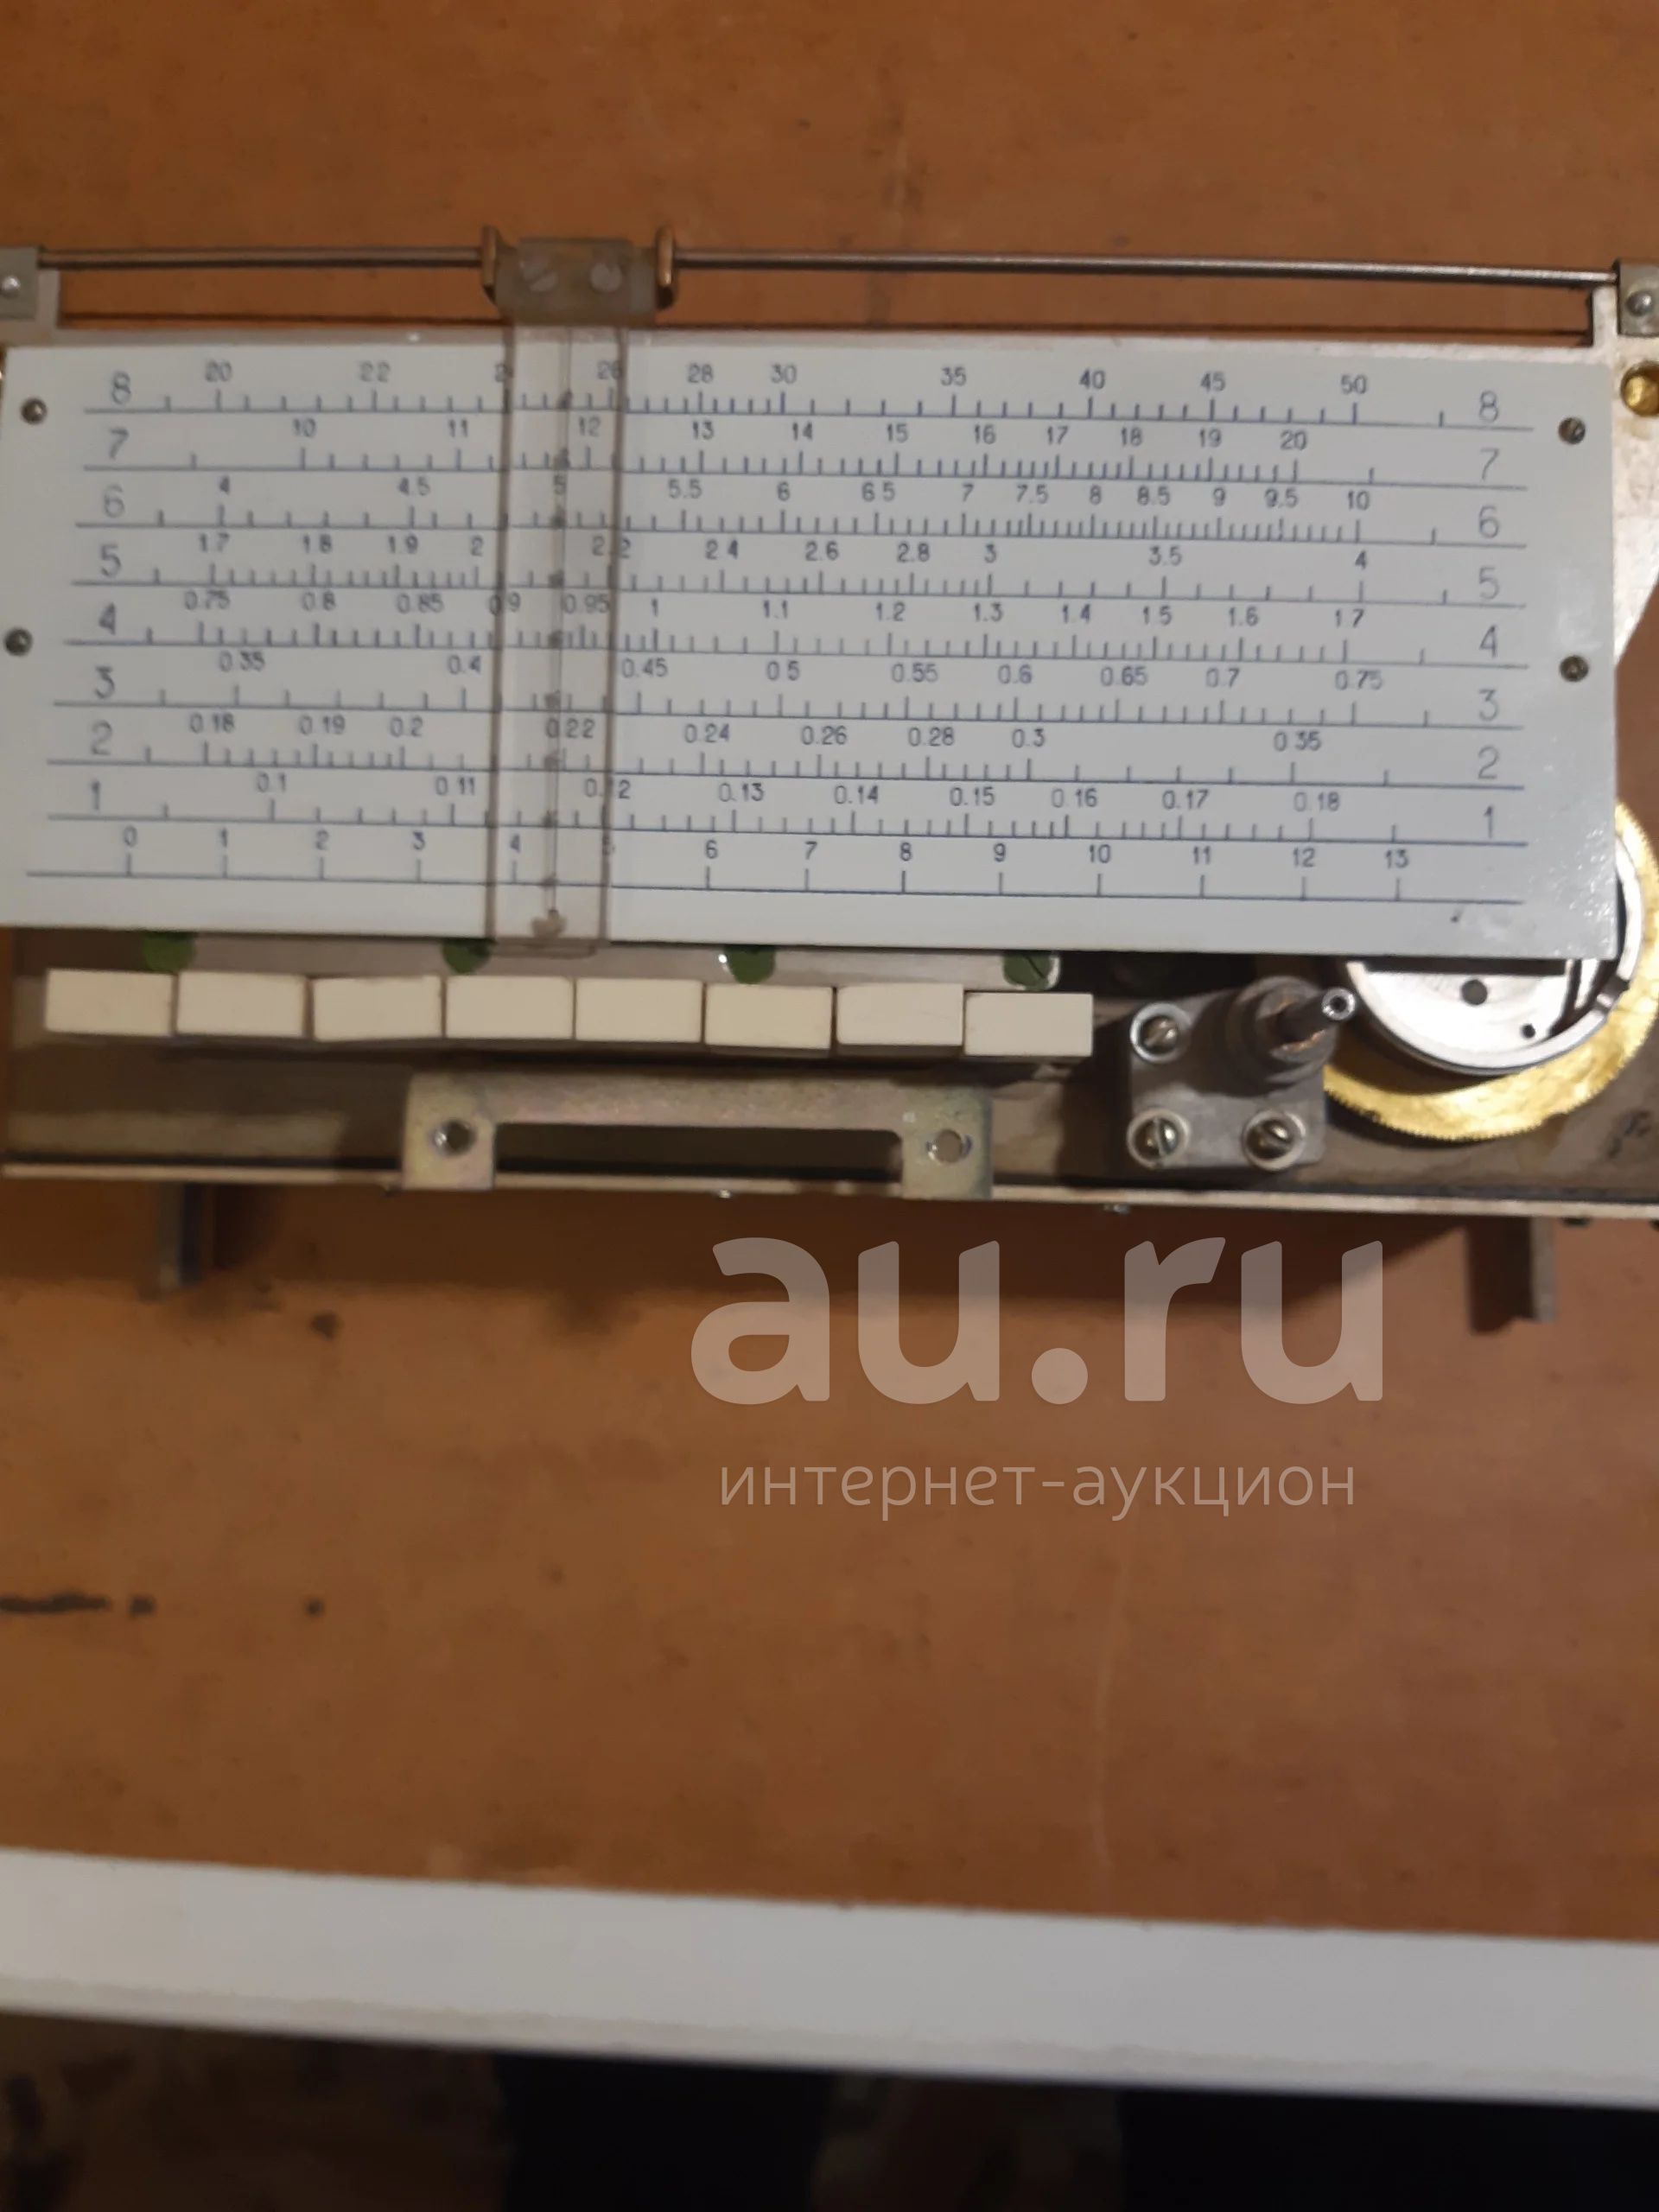 20 22 26 28 30 35 40 45 50
8 8
10 11 12 13 14 15 16 17 18 19 20
7 7
4 4.5 5 5.5 6 6.5 7 7.5 8 8.5 9 9.5 10
6 6
1.7 1.8 1.9 2 2.2 2.4 2.6 2.8 3 3.5 4
5 5
0.75 0.8 0.85 0.9 0.95 1 1.1 1.2 1.3 1.4 1.5 1.6 1.7
4 4
0.35 0.4 0.45 0.5 0.55 0.6 0.65 0.7 0.75
3 3
0.18 0.19 0.2 0.22 0.24 0.26 0.28 0.3 0.35
2 2
0.1 0.11 0.12 0.13 0.14 0.15 0.16 0.17 0.18
1 1
0 1 2 3 4 5 6 7 8 9 10 11 12 13
au.ru
интернет-аукцион